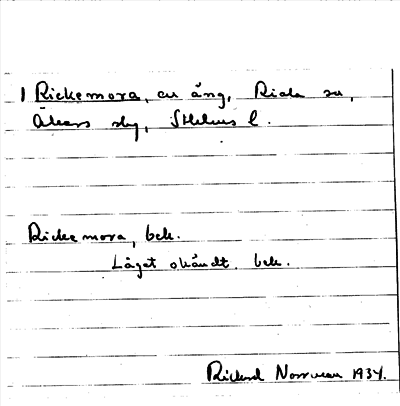 1 Rickemora, en äng, Riala sn,
Åkers skg, Sthlms l.
Rickemora, bek.
Läget okändt. bek.
Rickard Norrman 1934.